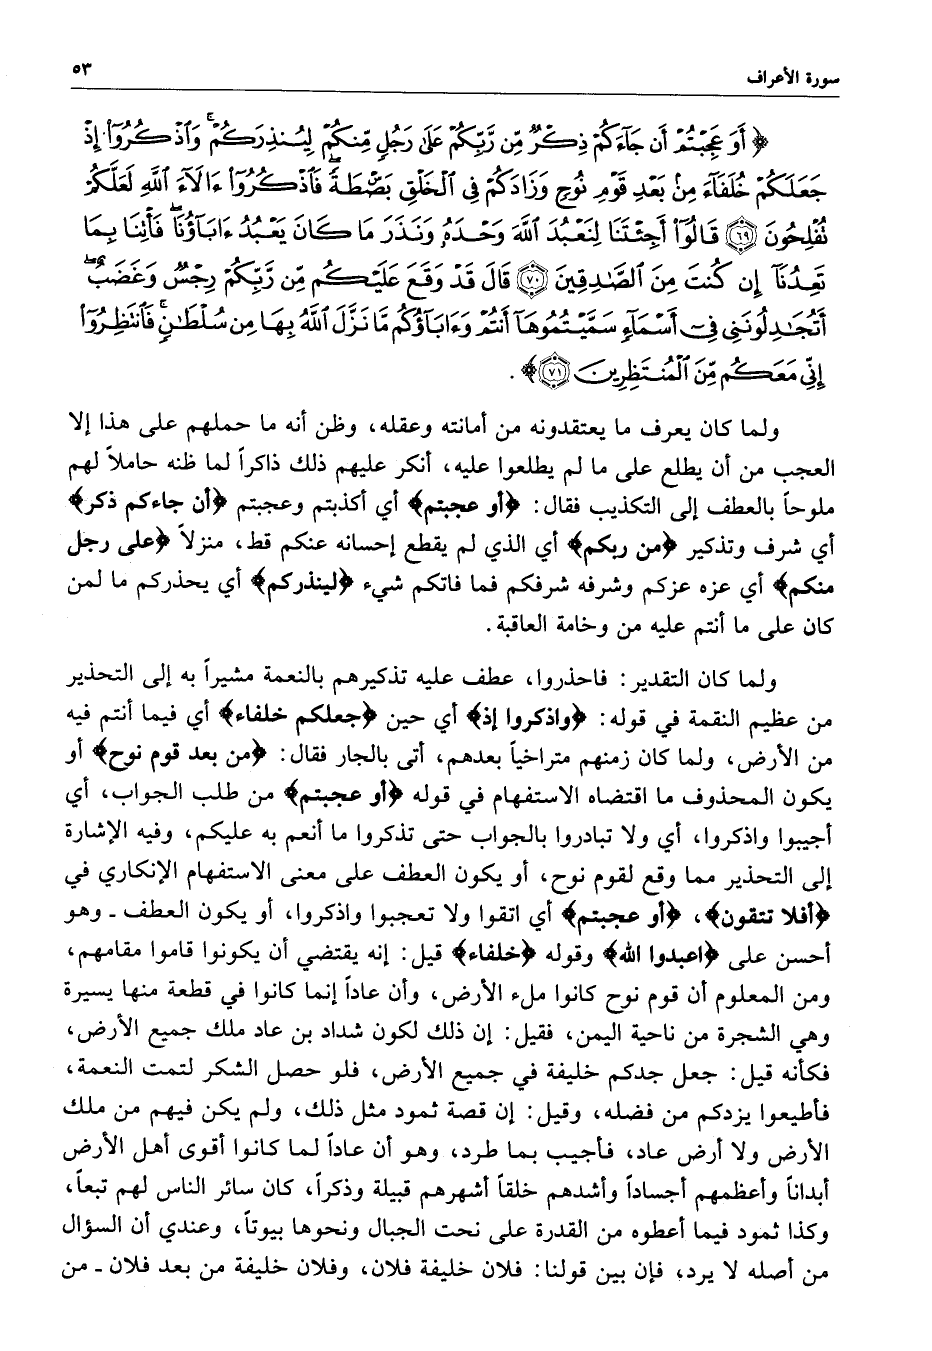 سورة الأعراف ٥٣
﴿ أَوَعَجِبْتُمْ أَن جَآءَكُمْ ذِكْرٌ مِّن رَّبِّكُمْ عَلَىٰ رَجُلٍ مِّنكُمْ لِيُنذِرَكُمْ ۚ وَٱذْكُرُوٓا۟ إِذْ
جَعَلَكُمْ خُلَفَآءَ مِنۢ بَعْدِ قَوْمِ نُوحٍ وَزَادَكُمْ فِى ٱلْخَلْقِ بَصْۜطَةً ۖ فَٱذْكُرُوٓا۟ ءَالَآءَ ٱللَّهِ لَعَلَّكُمْ
تُفْلِحُونَ ٦٩ قَالُوٓا۟ أَجِئْتَنَا لِنَعْبُدَ ٱللَّهَ وَحْدَهُۥ وَنَذَرَ مَا كَانَ يَعْبُدُ ءَابَآؤُنَا ۖ فَأْتِنَا بِمَا
تَعِدُنَآ إِن كُنتَ مِنَ ٱلصَّٰدِقِينَ ٧٠ قَالَ قَدْ وَقَعَ عَلَيْكُم مِّن رَّبِّكُمْ رِجْسٌ وَغَضَبٌ ۖ
أَتُجَٰدِلُونَنِى فِىٓ أَسْمَآءٍ سَمَّيْتُمُوهَآ أَنتُمْ وَءَابَآؤُكُم مَّا نَزَّلَ ٱللَّهُ بِهَا مِن سُلْطَٰنٍ ۚ فَٱنتَظِرُوٓا۟
إِنِّى مَعَكُم مِّنَ ٱلْمُنتَظِرِينَ ٧١ ﴾ .
ولما كان يعرف ما يعتقدونه من أمانته وعقله، وظن أنه ما حملهم على هذا إلا
العجب من أن يطلع على ما لم يطلعوا عليه، أنكر عليهم ذلك ذاكراً لما ظنه حاملاً لهم
ملوحاً بالعطف إلى التكذيب فقال: ﴿أو عجبتم﴾ أي أكذبتم وعجبتم ﴿أن جاءكم ذكر﴾
أي شرف وتذكير ﴿من ربكم﴾ أي الذي لم يقطع إحسانه عنكم قط، منزلاً ﴿على رجل
منكم﴾ أي عزه عزكم وشرفه شرفكم فما فاتكم شيء ﴿لينذركم﴾ أي يحذركم ما لمن
كان على ما أنتم عليه من وخامة العاقبة.
ولما كان التقدير: فاحذروا، عطف عليه تذكيرهم بالنعمة مشيراً به إلى التحذير
من عظيم النقمة في قوله: ﴿واذكروا إذ﴾ أي حين ﴿جعلكم خلفاء﴾ أي فيما أنتم فيه
من الأرض، ولما كان زمنهم متراخياً بعدهم، أتى بالجار فقال: ﴿من بعد قوم نوح﴾ أو
يكون المحذوف ما اقتضاه الاستفهام في قوله ﴿أو عجبتم﴾ من طلب الجواب، أي
أجيبوا واذكروا، أي ولا تبادروا بالجواب حتى تذكروا ما أنعم به عليكم، وفيه الإشارة
إلى التحذير مما وقع لقوم نوح، أو يكون العطف على معنى الاستفهام الإنكاري في
﴿أفلا تتقون﴾، ﴿أو عجبتم﴾ أي اتقوا ولا تعجبوا واذكروا، أو يكون العطف ـ وهو
أحسن على ﴿اعبدوا الله﴾ وقوله ﴿خلفاء﴾ قيل: إنه يقتضي أن يكونوا قاموا مقامهم،
ومن المعلوم أن قوم نوح كانوا ملء الأرض، وأن عاداً إنما كانوا في قطعة منها يسيرة
وهي الشجرة من ناحية اليمن، فقيل: إن ذلك لكون شداد بن عاد ملك جميع الأرض،
فكأنه قيل: جعل جدكم خليفة في جميع الأرض، فلو حصل الشكر لتمت النعمة،
فأطيعوا يزدكم من فضله، وقيل: إن قصة ثمود مثل ذلك، ولم يكن فيهم من ملك
الأرض ولا أرض عاد، فأجيب بما طرد، وهو أن عاداً لما كانوا أقوى أهل الأرض
أبداناً وأعظمهم أجساداً وأشدهم خلقاً أشهرهم قبيلة وذكراً، كان سائر الناس لهم تبعاً،
وكذا ثمود فيما أعطوه من القدرة على نحت الجبال ونحوها بيوتاً، وعندي أن السؤال
من أصله لا يرد، فإن بين قولنا: فلان خليفة فلان، وفلان خليفة من بعد فلان ـ من